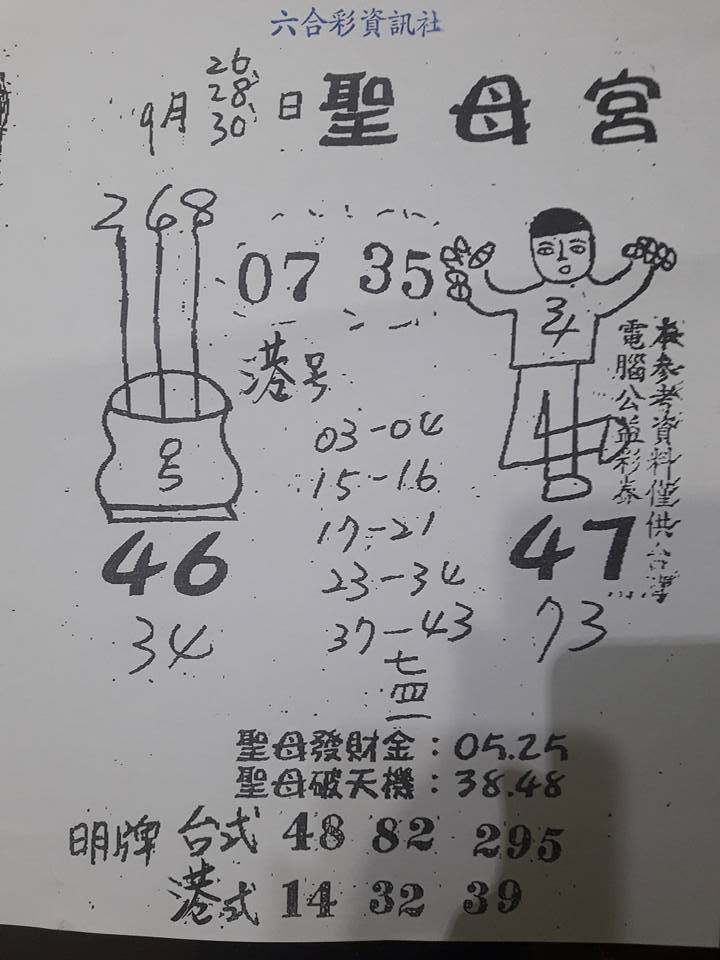 六合彩資訊社
9月 26、28、30 日 聖母宮
268
07 35
34
港号
号
03-04
15-16
17-21
23-34
37-43
七
四
一
46
34
47
73
本參考資料僅供台灣
電腦公益彩券
聖母發財金：05.25
聖母破天機：38.48
明牌 台式 48 82 295
港式 14 32 39